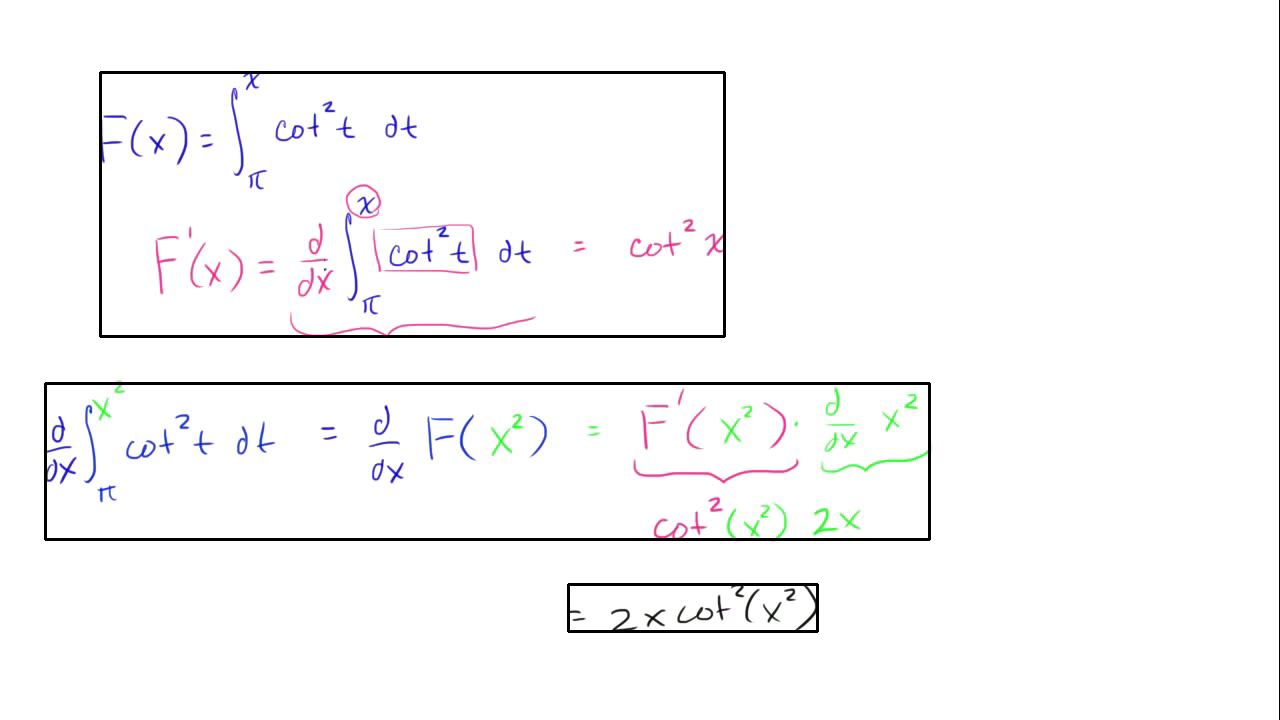 F(x) = ∫_π^x cot² t dt
F'(x) = d/dx ∫_π^x cot² t dt = cot² x
d/dx ∫_π^(x²) cot² t dt = d/dx F(x²) = F'(x²) · d/dx x²
cot²(x²) 2x
= 2x cot²(x²)